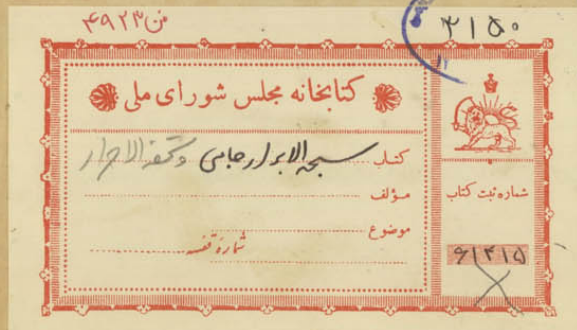 ف ۴۹۲۳
۳۱۵۰
۱۲
کتابخانه مجلس شورای ملی
کتاب سبحة الابرار جامی و تحفة الاحرار
مؤلف
موضوع
شماره قفسه
شماره ثبت کتاب
۶۱۴۱۵